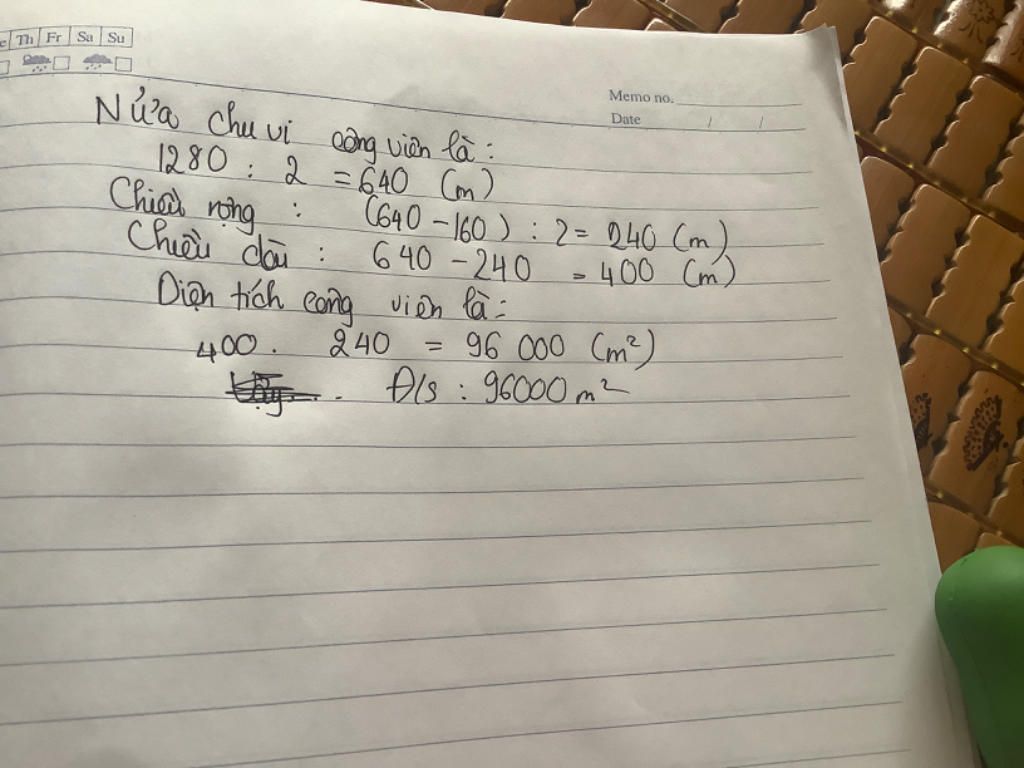 e Th Fr Sa Su
Memo no.
Date / /
Nửa chu vi công viên là :
1280 : 2 = 640 (m)
Chiều rộng : (640 - 160) : 2 = 240 (m)
Chiều dài : 640 - 240 = 400 (m)
Diện tích công viên là :
400 . 240 = 96 000 (m²)
Đ/s : 96000 m²